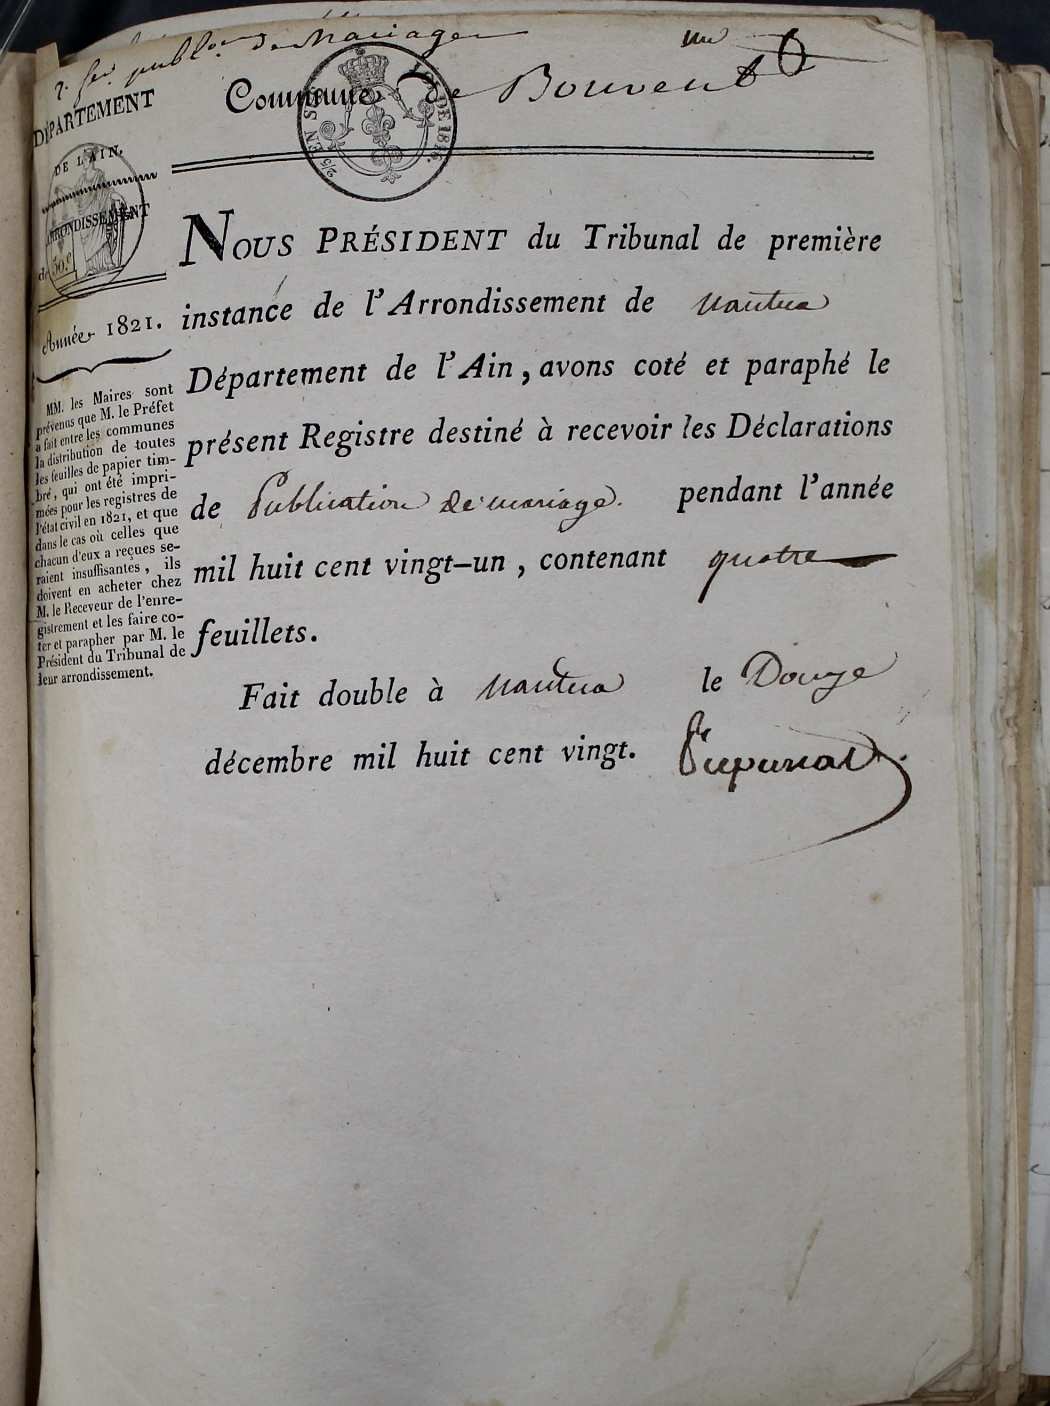 publ.on de Mariage
Commune de Bouvent
DÉPARTEMENT
DE L'AIN.
ARRONDISSEMENT
de
Année 1821.
MM. les Maires sont
prévenus que M. le Préfet
a fait entre les communes
la distribution de toutes
les feuilles de papier tim-
bré, qui ont été impri-
mées pour les registres de
l'état civil en 1821, et que
dans le cas où celles que
chacun d'eux a reçues se-
raient insuffisantes, ils
doivent en acheter chez
M. le Receveur de l'enre-
gistrement et les faire co-
ter et parapher par M. le
Président du Tribunal de
leur arrondissement.
NOUS PRÉSIDENT du Tribunal de première
instance de l'Arrondissement de Nantua
Département de l'Ain, avons coté et paraphé le
présent Registre destiné à recevoir les Déclarations
de Publication de mariage. pendant l'année
mil huit cent vingt-un, contenant quatre
feuillets.
Fait double à Nantua le Douze
décembre mil huit cent vingt.